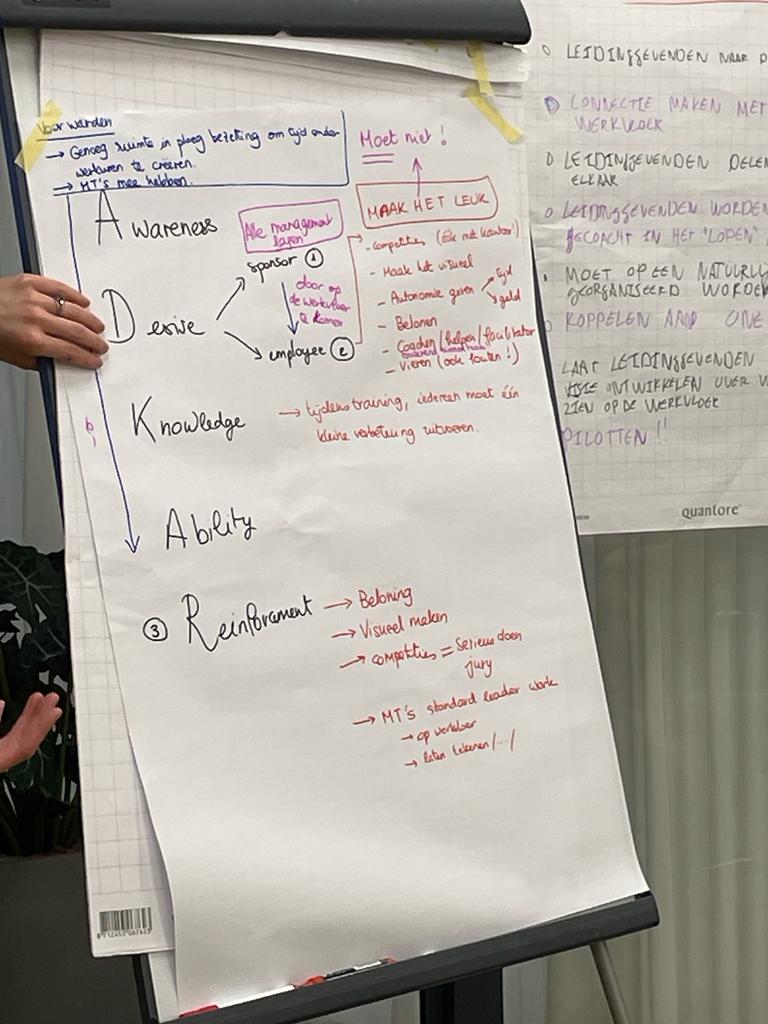 Voorwaarden
→ Genoeg ruimte in ploeg bezetting om tijd onder
werkuren te creëren.
→ MT's mee hebben.
Moet niet !
MAAK HET LEUK
Awareness
Alle management
lagen
- Competities (Ook met kantoor!)
- Maak het visueel
- Autonomie geven → tijd
→ geld
- Belonen
- Coachen / helpen / facilitator
- Vieren (ook fouten !)
Desire
sponsor ①
door op
de werkvloer
te komen
employee ②
Knowledge
→ tijdens training, iedereen moet één
kleine verbetering uitvoeren.
Ability
③ Reinforcament
→ Beloning
→ Visueel maken
→ Competities = Serieus doen
jury
→ MT's standard leader work
→ op werkvloer
→ laten tekenen /.../
O LEIDINGGEVENDEN NAAR D
O CONNECTIE MAKEN MET
WERKVLOER
O LEIDINGGEVENDEN DELEN
ELKAAR
O LEIDINGGEVENDEN WORDEN
GECOACHT IN HET "LOPEN"
MOET OP EEN NATUURLIJ
GEORGANISEERD WORDEN
KOPPELEN AAN ONE
LAAT LEIDINGGEVENDEN
VISIE ONTWIKKELEN OVER W
ZIEN OP DE WERKVLOER
PILOTTEN !!
quantore
8712453067623